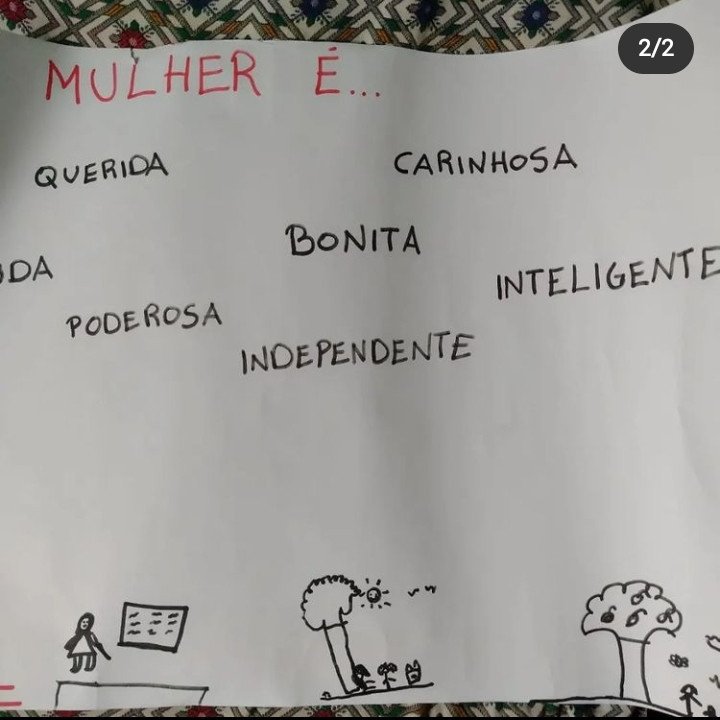 2/2
MULHER É...
QUERIDA
CARINHOSA
BONITA
INTELIGENTE
PODEROSA
INDEPENDENTE